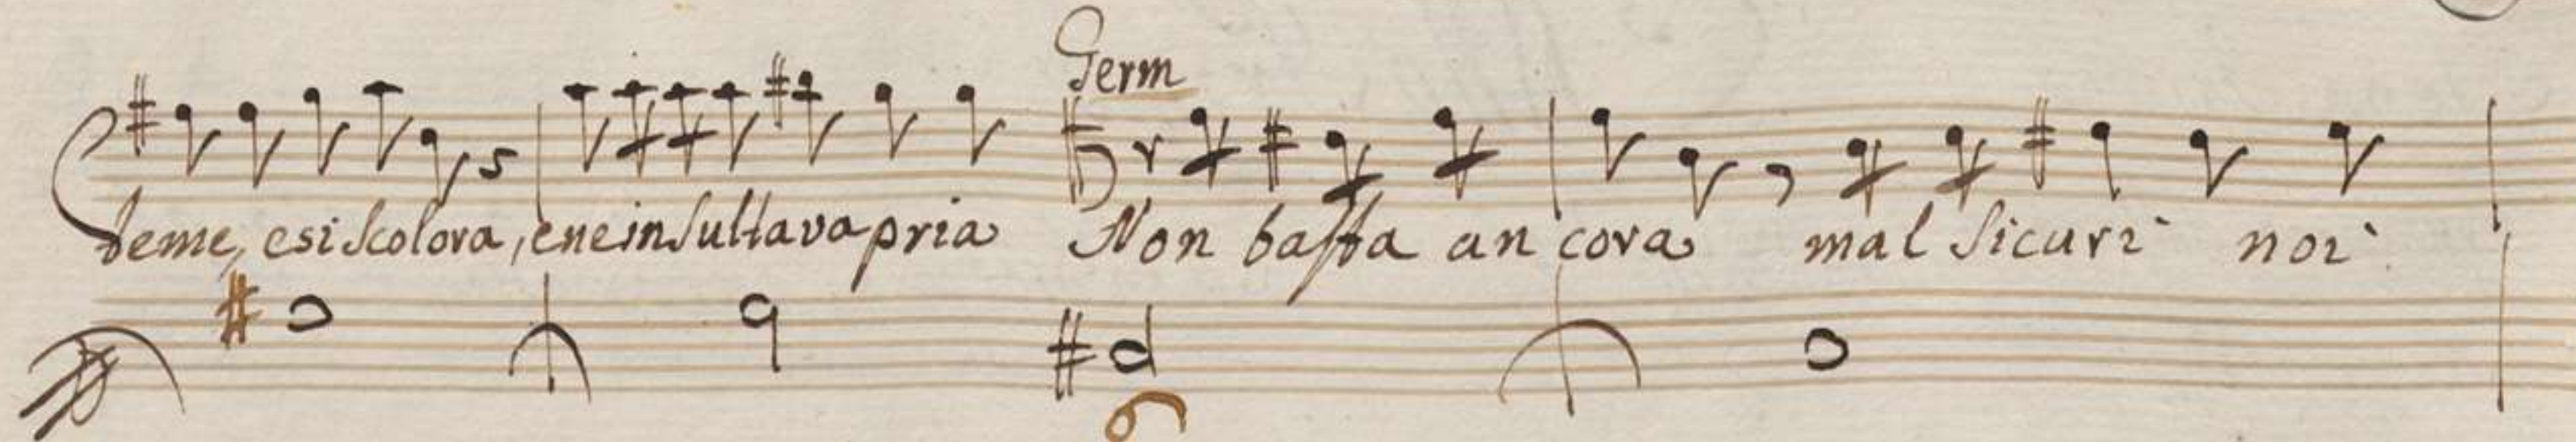 Germ
teme, e si scolora, e ne insultava pria Non basta ancora mal sicuri noi
6